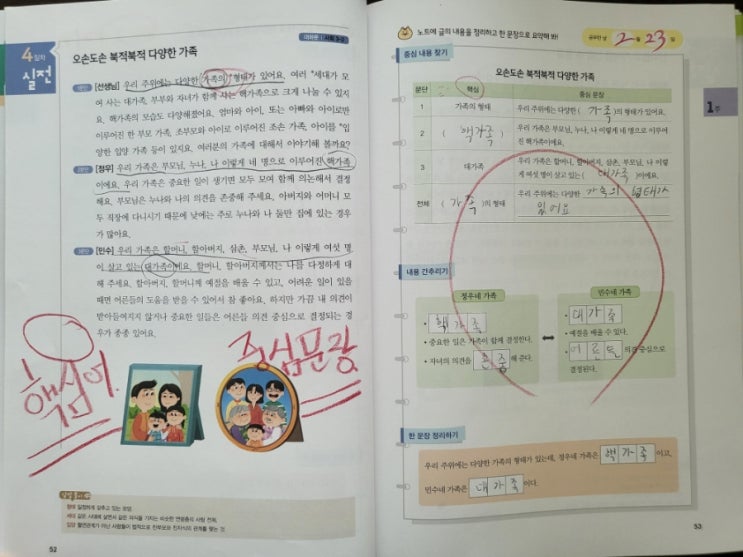 4일차
실전
오손도손 북적북적 다양한 가족
[선생님] 우리 주위에는 다양한 가족의 형태가 있어요. 여러 세대가 모
여 사는 대가족, 부부와 자녀가 함께 사는 핵가족으로 크게 나눌 수 있지
요. 핵가족의 모습도 다양해졌어요. 엄마와 아이, 또는 아빠와 아이로만
이루어진 한 부모 가족, 조부모와 아이로 이루어진 조손 가족, 아이를 입
양한 입양 가족 등이 있지요. 여러분의 가족에 대해서 이야기해 볼까요?
[정우] 우리 가족은 부모님, 누나, 나 이렇게 네 명으로 이루어진 핵가족
이에요. 우리 가족은 중요한 일이 생기면 모두 모여 함께 의논해서 결정
해요. 부모님은 누나와 나의 의견을 존중해 주세요. 아버지와 어머니 모
두 직장에 다니시기 때문에 낮에는 주로 누나와 나 둘만 집에 있는 경우
가 많아요.
[민수] 우리 가족은 할머니, 할아버지, 삼촌, 부모님, 나 이렇게 여섯 명
이 살고 있는 대가족이에요. 할머니, 할아버지께서는 나를 다정하게 대
해 주세요. 할아버지, 할머니께 예절을 배울 수 있고, 어려운 일이 있을
때면 어른들의 도움을 받을 수 있어서 참 좋아요. 하지만 가끔 내 의견이
받아들여지지 않거나 중요한 일들은 어른들 의견 중심으로 결정되는 경
우가 종종 있어요.
핵심어
중심문장
52
노트에 글의 내용을 정리하고 한 문장으로 요약해 봐!
공부한 날 2월 23일
중심 내용 찾기
오손도손 북적북적 다양한 가족
문단 핵심 중심 문장
1 가족의 형태 우리 주위에는 다양한 ( 가족 )의 형태가 있어요.
2 ( 핵가족 ) 우리 가족은 부모님, 누나, 나 이렇게 네 명으로 이루어
진 핵가족이에요.
3 대가족 우리 가족은 할머니, 할아버지, 삼촌, 부모님, 나 이렇
게 여섯 명이 살고 있는 ( 대가족 )이에요.
전체 ( 가족 )의 형태 우리 주위에는 다양한 가족의 형태가
있어요
1주
내용 간추리기
정우네 가족
핵가족
• 중요한 일은 가족이 함께 결정한다.
• 자녀의 의견을 존중해 준다.
민수네 가족
대가족
• 예절을 배울 수 있다.
• 어른들 의견 중심으로
결정된다.
한 문장 정리하기
우리 주위에는 다양한 가족의 형태가 있는데, 정우네 가족은 핵가족이고,
민수네 가족은 대가족이다.
53